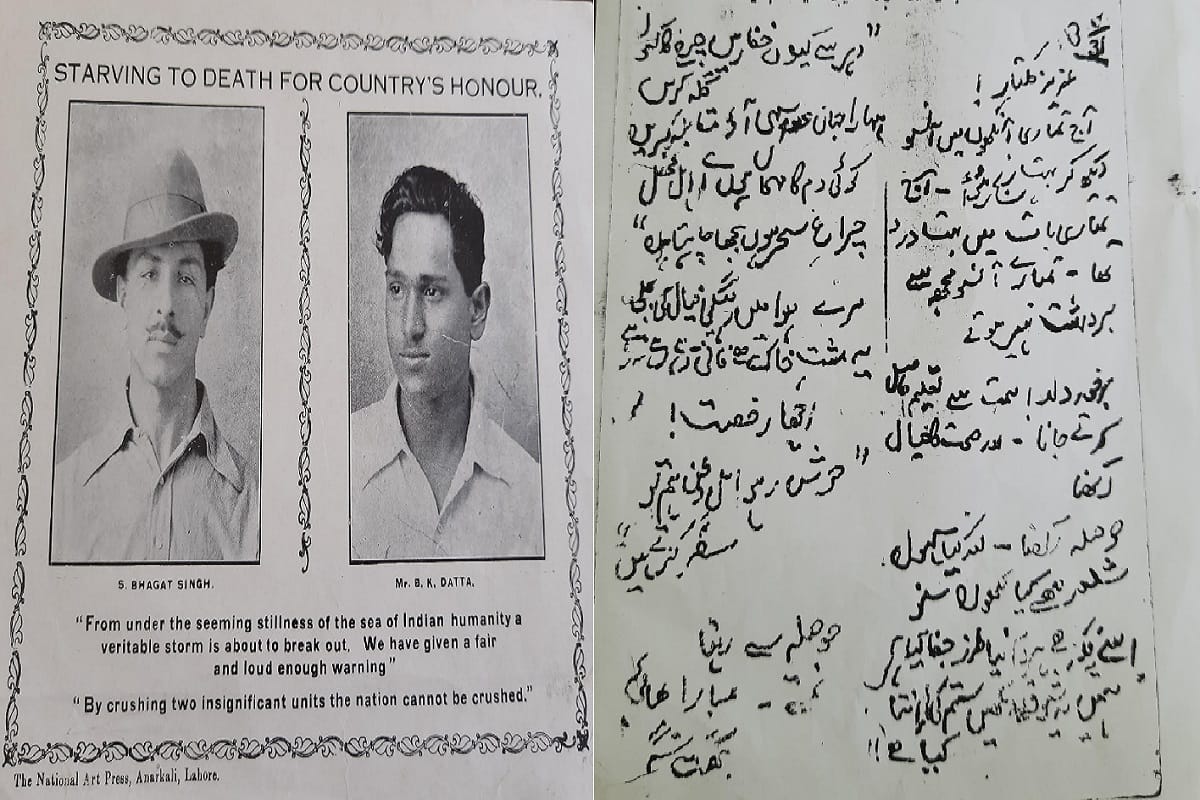 STARVING TO DEATH FOR COUNTRY'S HONOUR.
S. BHAGAT SINGH.
Mr. B. K. DATTA.
"From under the seeming stillness of the sea of Indian humanity a
veritable storm is about to break out. We have given a fair
and loud enough warning"
"By crushing two insignificant units the nation cannot be crushed."
The National Art Press, Anarkali, Lahore.
عزیز کلتار!
آج تمہاری آنکھوں میں آنسو
دیکھ کر بہت رنج ہوا - آج
تمہاری بات میں بہت درد
تھا - تمہارے آنسو مجھ سے
برداشت نہیں ہوتے
برخوردار! ہمت سے تعلیم حاصل
کرتے جانا - اور صحت کا خیال
رکھنا
حوصلہ رکھنا - اور کیا کہوں
اسے فکر ہے ہردم نیا طرز جفا کیا ہے
ہمیں یہ شوق ہے دیکھیں ستم کی انتہا
کیا ہے!!
"دہر سے کیوں خفا رہیں چرخ کا کیوں
گلہ کریں
سارا جہاں عدو سہی آؤ مقابلہ کریں
کوئی دم کا مہماں ہوں اے اہل محفل
چراغ سحر ہوں بجھا چاہتا ہوں"
مرے ہوا میں رہے گی خیال کی بجلی
یہ مشت خاک ہے فانی رہے رہے نہ رہے
اچھا رخصت!
"خوش رہو اہل وطن ہم تو
سفر کرتے ہیں"
حوصلہ سے رہنا
نمستے - تمہارا بھائی
بھگت سنگھ